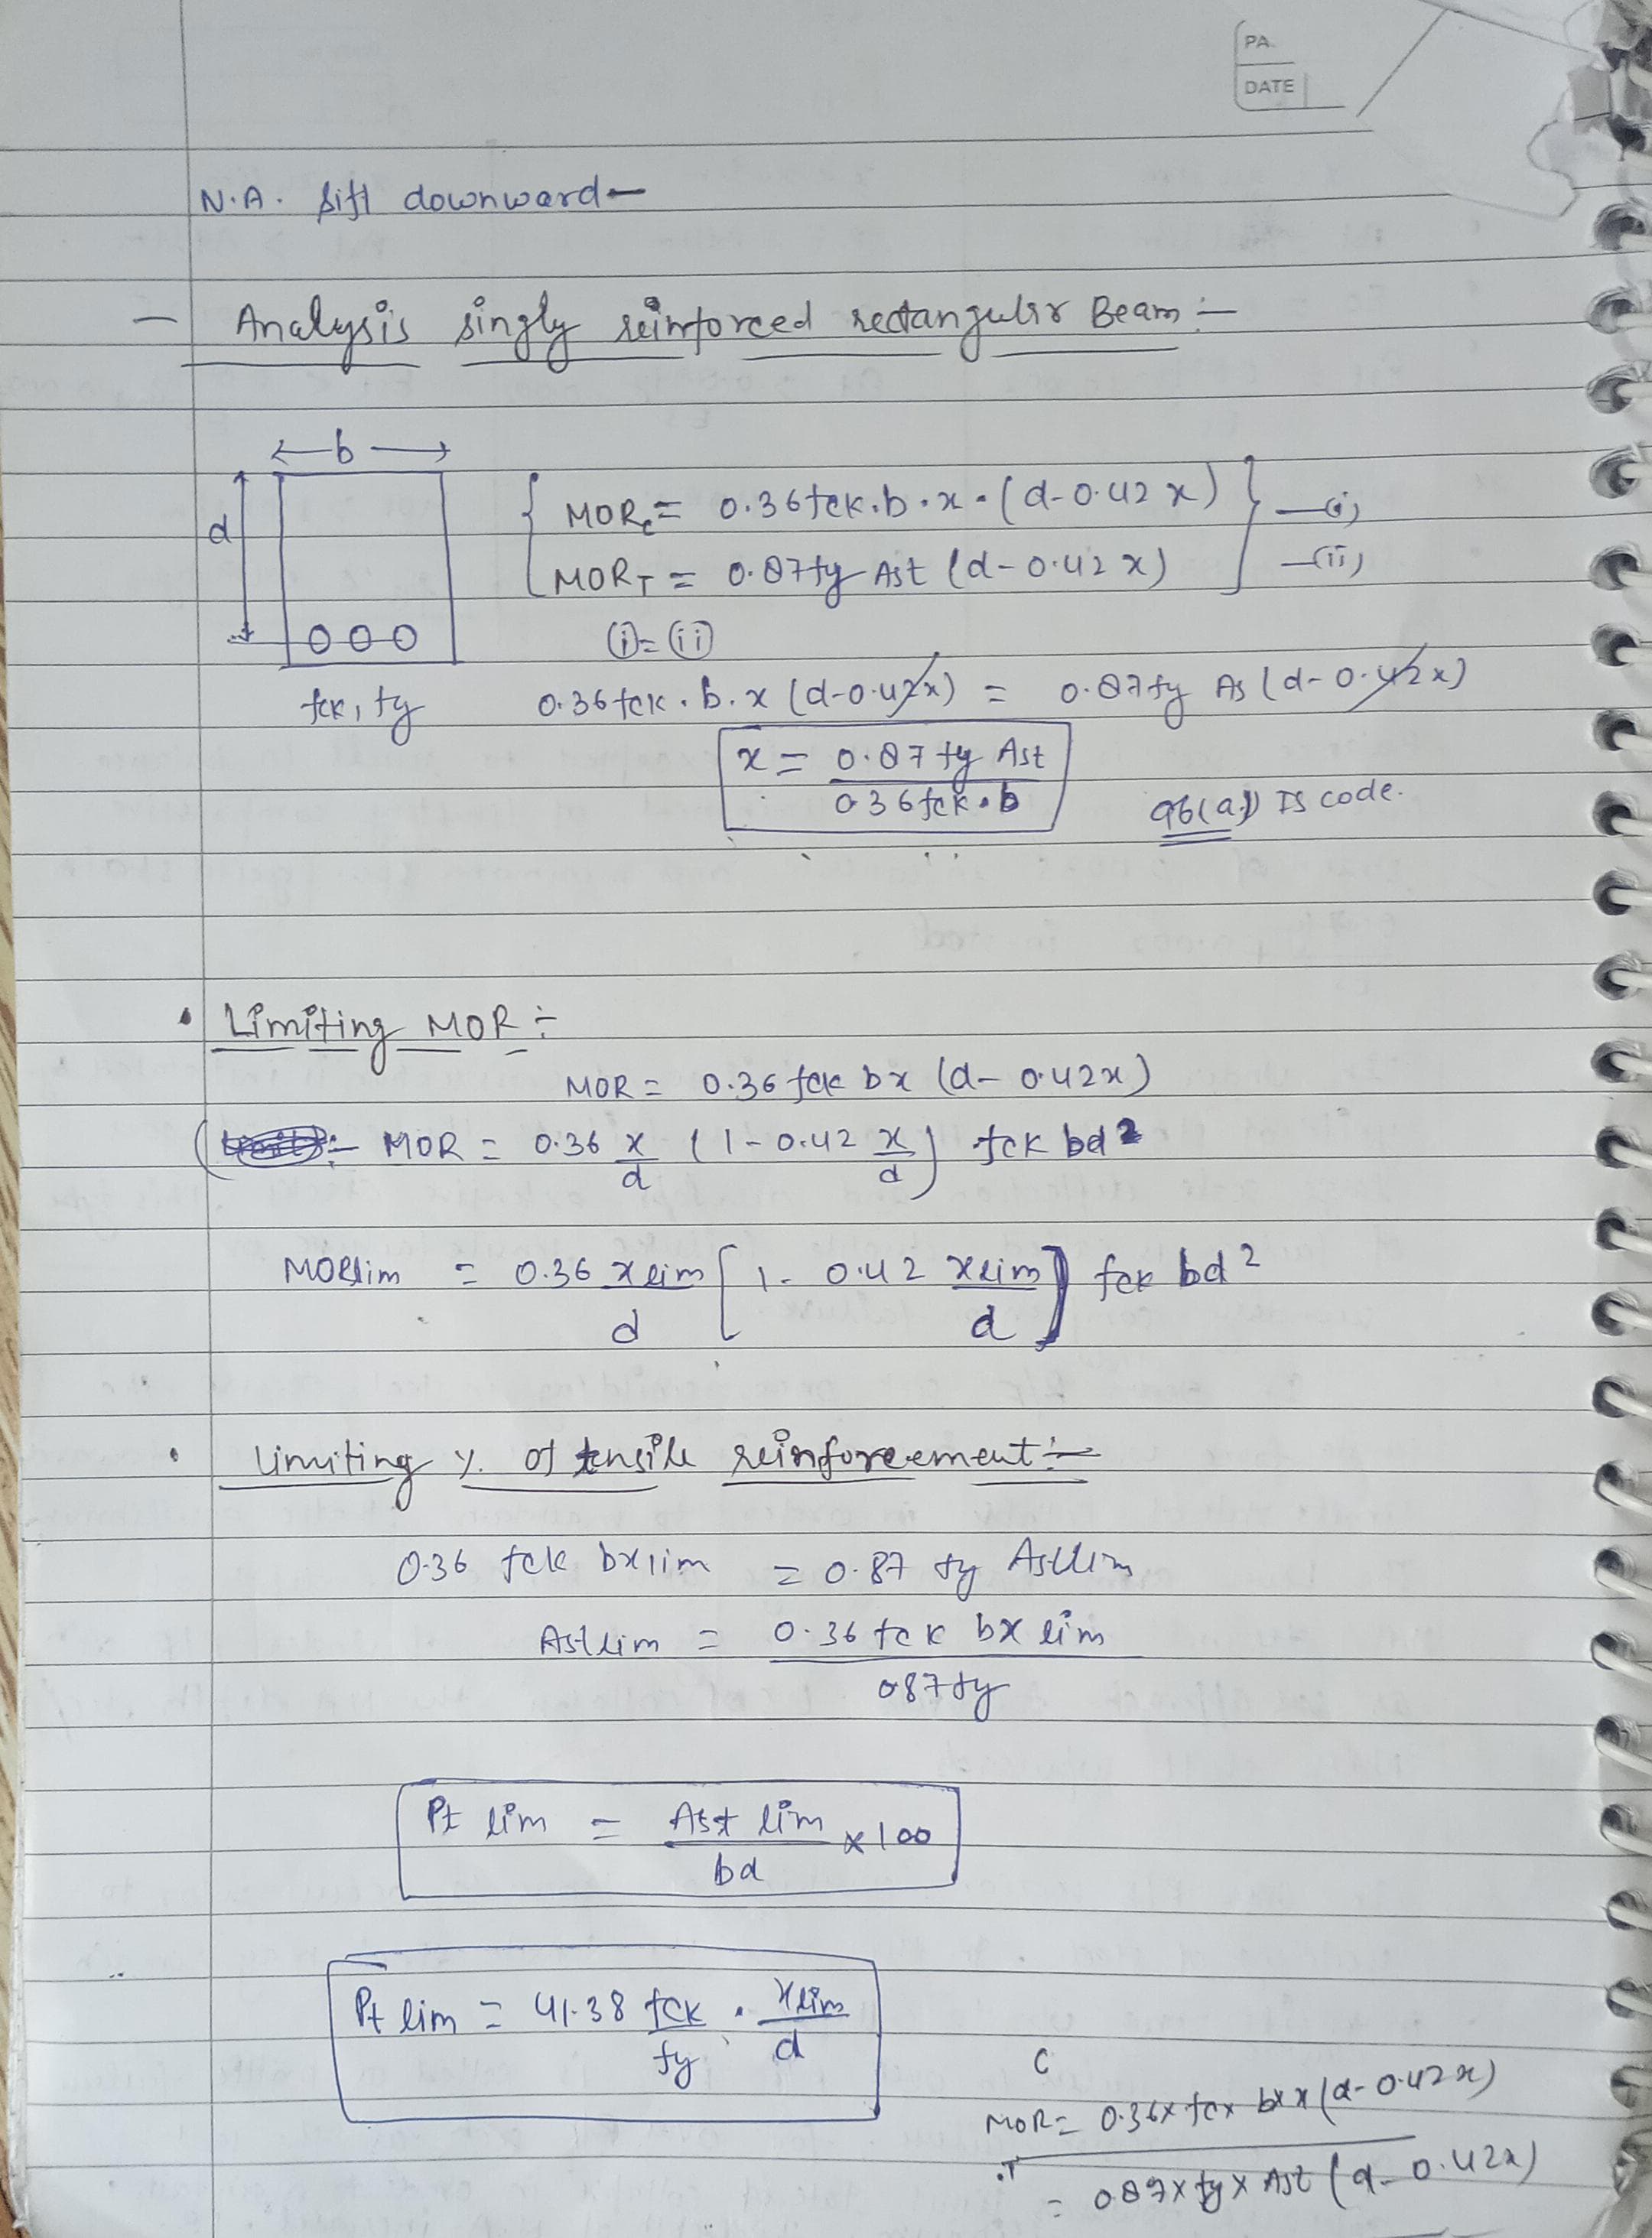 PA
DATE
N.A. sift downward-
- Analysis singly reinforced rectangular Beam :-
b
d
fck, fy
MORc = 0.36 fck.b.x.(d-0.42x) —(i)
MORT = 0.87fy Ast (d-0.42x) —(ii)
(i) = (ii)
0.36 fck.b.x (d-0.42x) = 0.87fy As (d-0.42x)
x = 0.87 fy Ast / 0.36 fck.b
IS code.
• Limiting MOR :-
MOR = 0.36 fck bx (d-0.42x)
:- MOR = 0.36 x/d (1-0.42 x/d) fck bd²
MORlim = 0.36 xlim/d [1-0.42 xlim/d] fck bd²
• Limiting %. of tensile reinforcement :-
0.36 fck bxlim = 0.87 fy Astlim
Astlim = 0.36 fck bxlim / 087fy
Pt lim = Ast lim / bd × 100
Pt lim = 41.38 fck/fy . xlim/d
C
MOR = 0.36× fc× b× x (d-0.42x)
T
= 087×fy× Ast (d-0.42x)